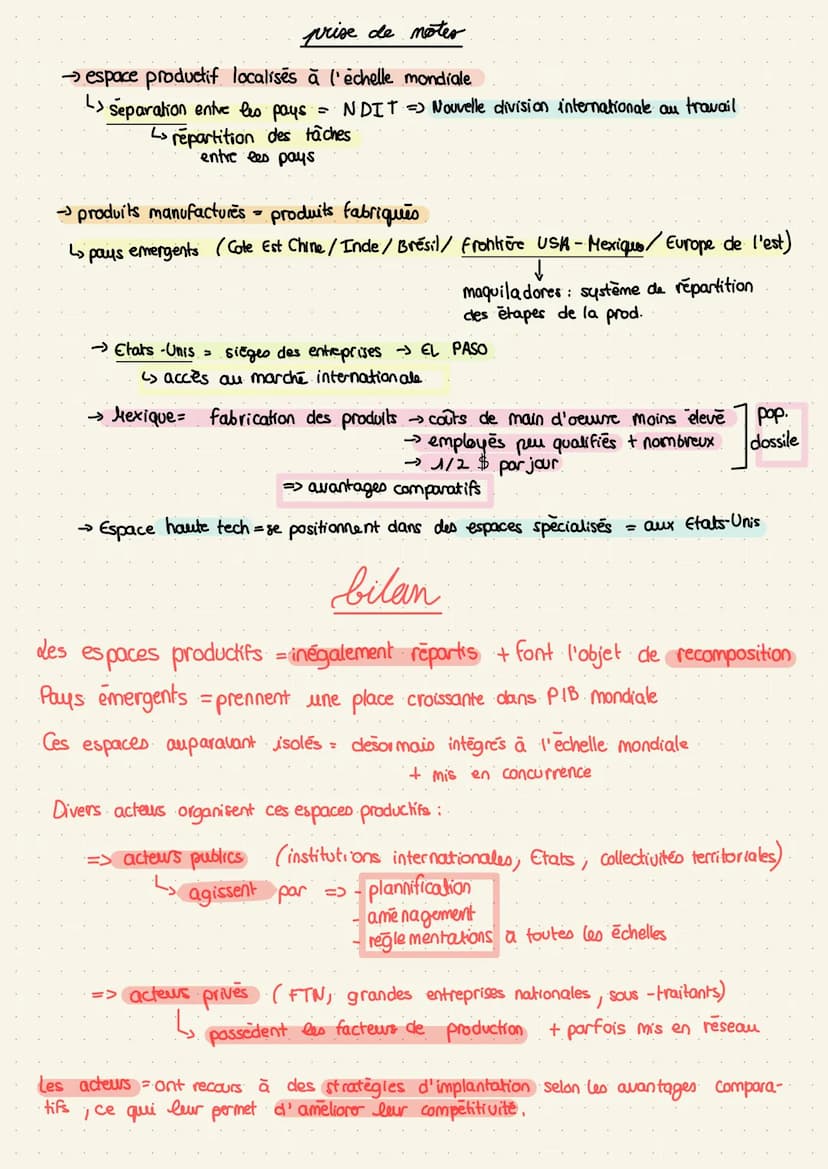 prise de notes
→ espace productif localisés à l'échelle mondiale
↳ séparation entre les pays = NDIT => Nouvelle division internationale au travail
↳ répartition des tâches
entre les pays
→ produits manufacturés = produits fabriqués
↳ pays emergents (Cote Est Chine / Inde / Brésil / Frontière USA - Mexique / Europe de l'est)
↓
maquiladores : système de répartition
des étapes de la prod.
→ Etats-Unis = sièges des entreprises → EL PASO
↳ accès au marché internationale
→ Mexique = fabrication des produits → coûts de main d'oeuvre moins élevé ] pop.
→ employés peu qualifiés + nombreux dossile
→ 1/2 $ par jour
=> avantages comparatifs
→ Espace haute tech = se positionnent dans des espaces spécialisés = aux Etats-Unis
bilan
Les espaces productifs = inégalement répartis + font l'objet de recomposition
Pays émergents = prennent une place croissante dans PIB mondiale
Ces espaces auparavant isolés = désormais intégrés à l'échelle mondiale
+ mis en concurrence
Divers acteurs organisent ces espaces productifs :
=> acteurs publics (institutions internationales, Etats, collectivités territoriales)
↳ agissent par => - plannification
- aménagement
- réglementations à toutes les échelles
=> acteurs privés (FTN, grandes entreprises nationales, sous-traitants)
↳ possèdent les facteurs de production + parfois mis en réseau
Les acteurs = ont recours à des stratégies d'implantation selon les avantages compara-
tifs, ce qui leur permet d'améliorer leur compétitivité.